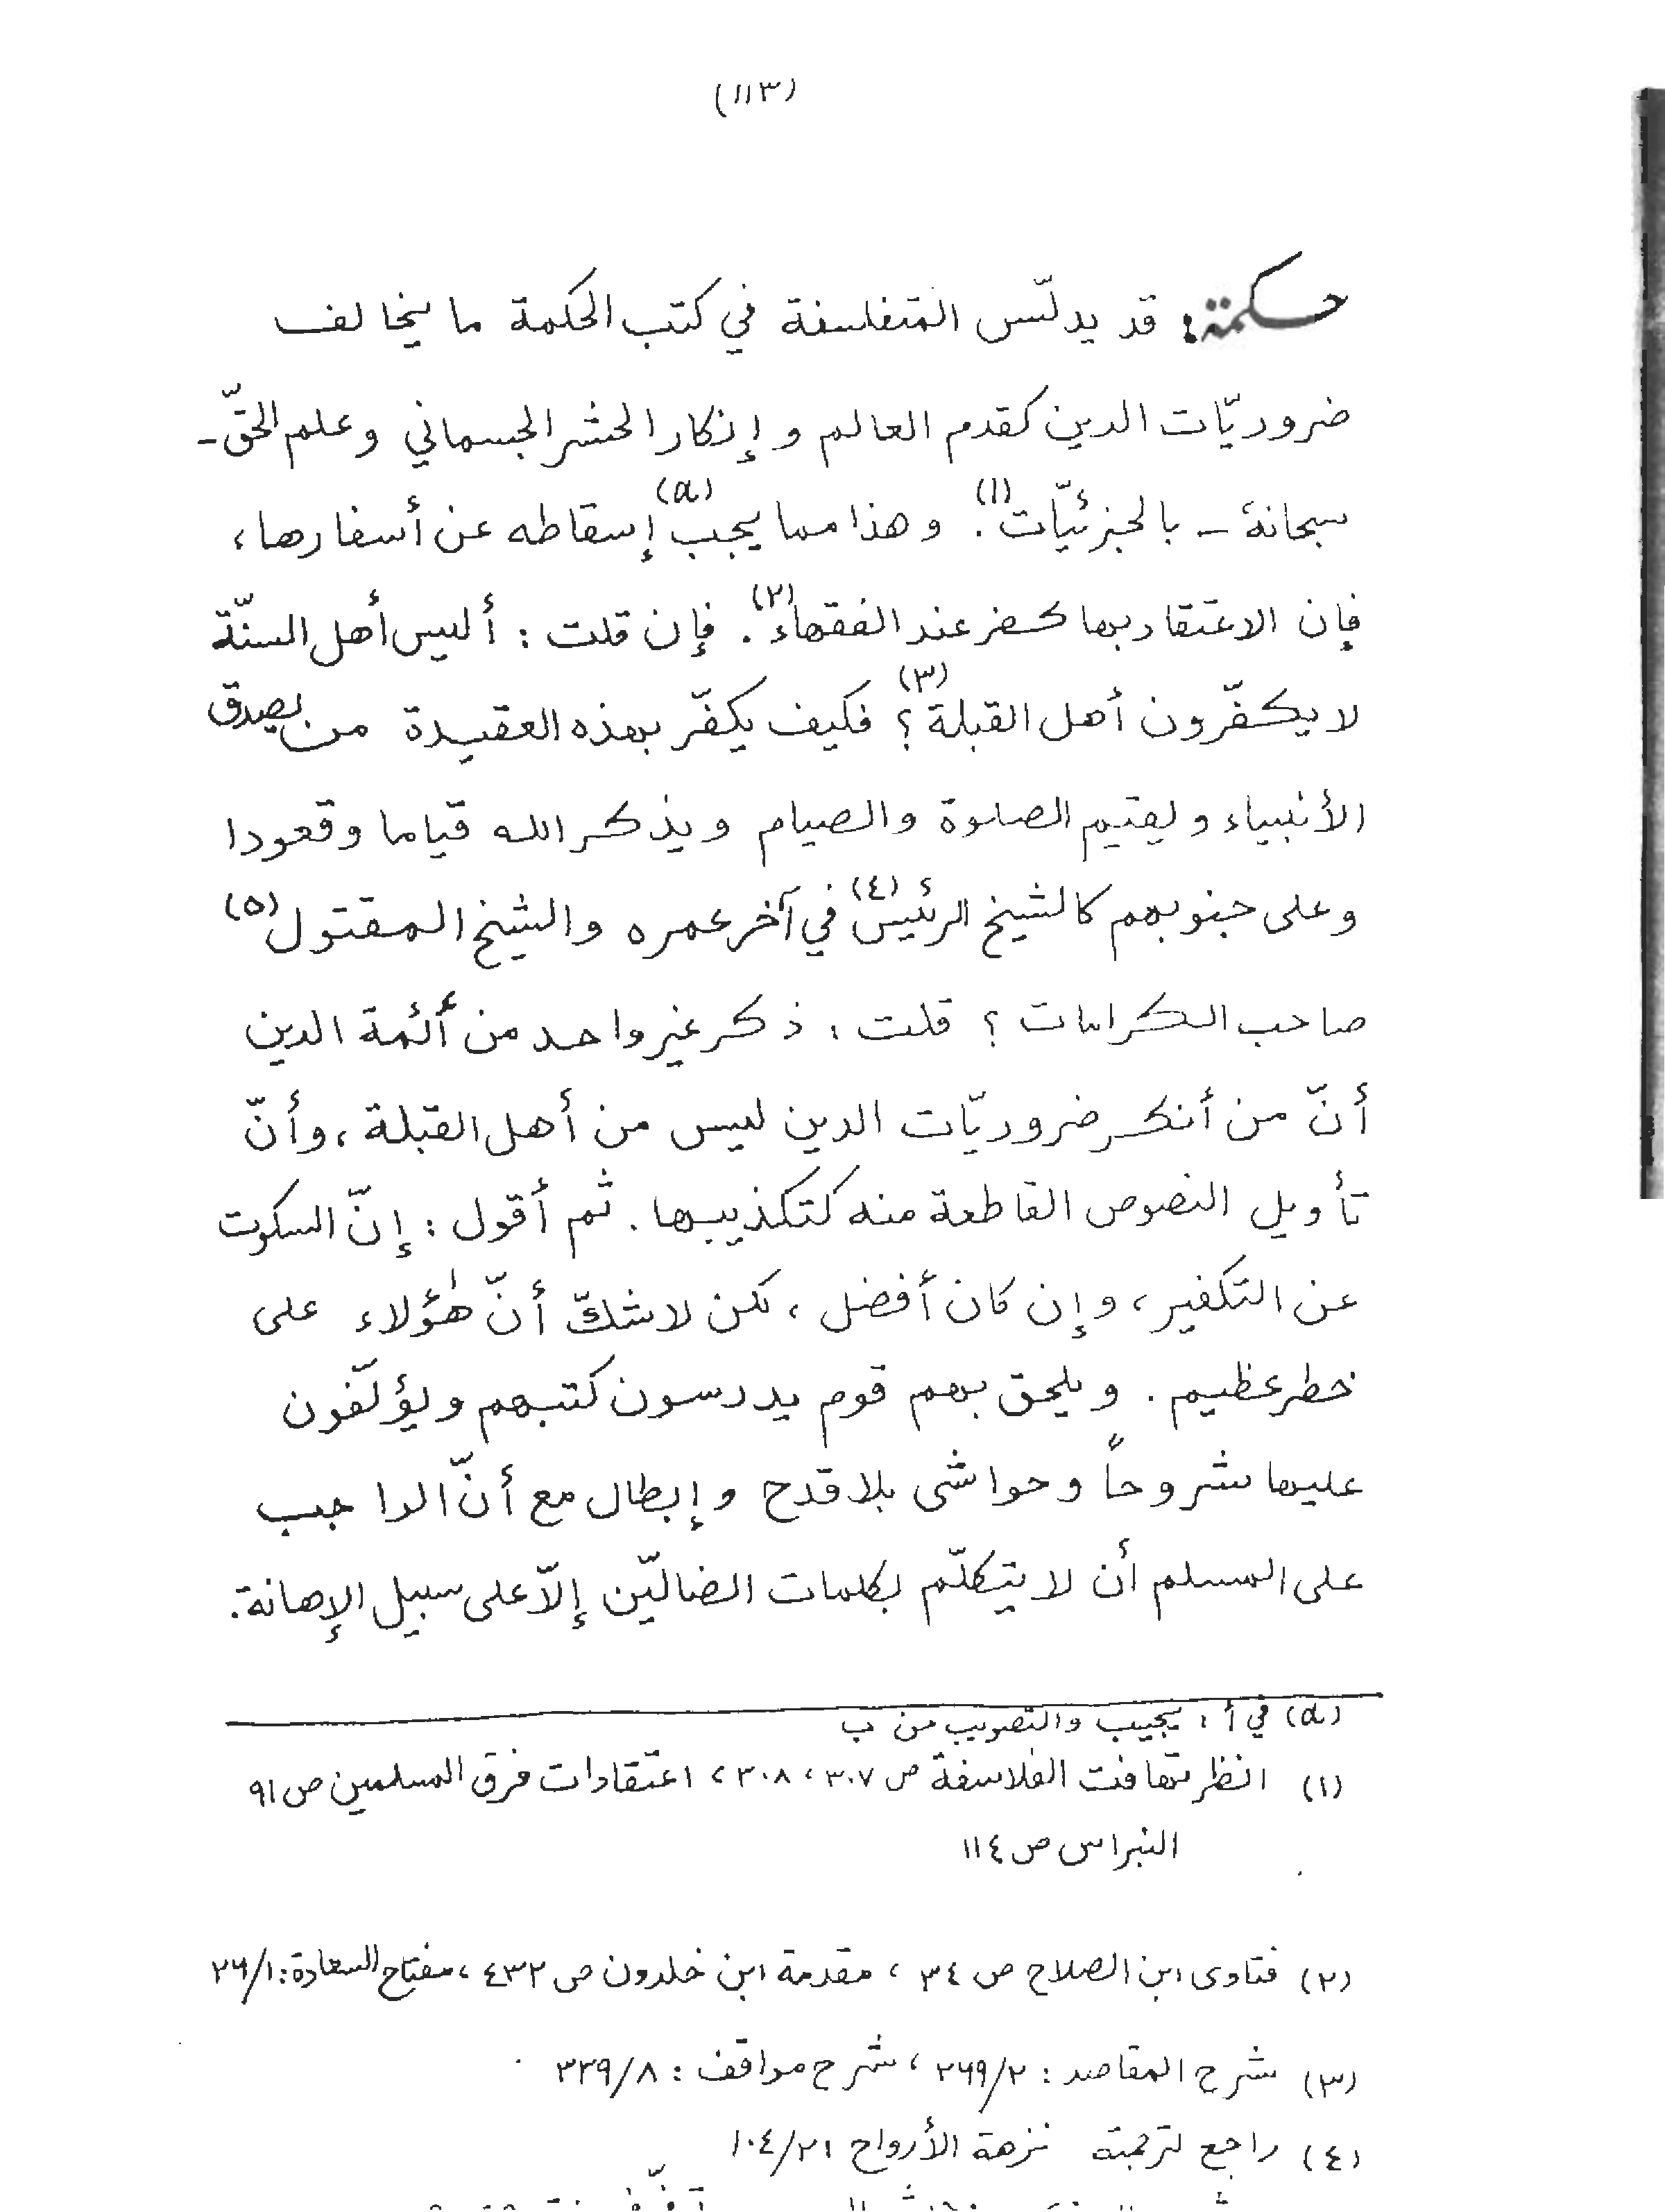 (١١٣)
حكمة: قد يدلّس المتفلسفة في كتب الحكمة ما يخالف
ضروريّات الدين كقدم العالم وإنكار الحشر الجسماني وعلم الحقّ -
سبحانهٗ - بالجزئيّات(١). وهذا مما يجب(a) إسقاطه عن أسفارها،
فإن الاعتقاد بها كفر عند الفقهاء(٢). فإن قلت: أليس أهل السنّة
لا يكفّرون أهل القبلة(٣)؟ فكيف يكفّر بهذه العقيدة من يصدق
الأنبياء ويقيم الصلوة والصيام ويذكر الله قياما وقعودا
وعلى جنوبهم كالشيخ الرئيس(٤) في آخر عمره والشيخ المقتول(٥)
صاحب الكرامات؟ قلت: ذكر غير واحد من أئمة الدين
أنّ من أنكر ضروريّات الدين ليس من أهل القبلة، وأنّ
تأويل النصوص القاطعة منه كتكذيبها. ثم أقول: إنّ السكوت
عن التكفير، وإن كان أفضل، لكن لا شكّ أنّ هٰؤلاء على
خطر عظيم. ويلحق بهم قوم يدرسون كتبهم ويؤلّفون
عليها شروحاً وحواشى بلا قدح وإبطال مع أنّ الواجب
على المسلم أن لا يتكلّم بكلمات الضالّين إلاّ على سبيل الإهانة.
(a) في أ: يجيب والتصويب من ب
(١) انظر تهافت الفلاسفة ص ٣٠٧، ٣٠٨، اعتقادات فرق المسلمين ص ٩١
النبراس ص ١١٤
(٢) فتاوى ابن الصلاح ص ٣٤، مقدمة ابن خلدون ص ٤٣٢، مفتاح السعادة: ٢٦/١
(٣) شرح المقاصد: ٢٦٩/٢، شرح مواقف: ٣٣٩/٨
(٤) راجع لترجمته نزهة الأرواح ١٠٤/٢١